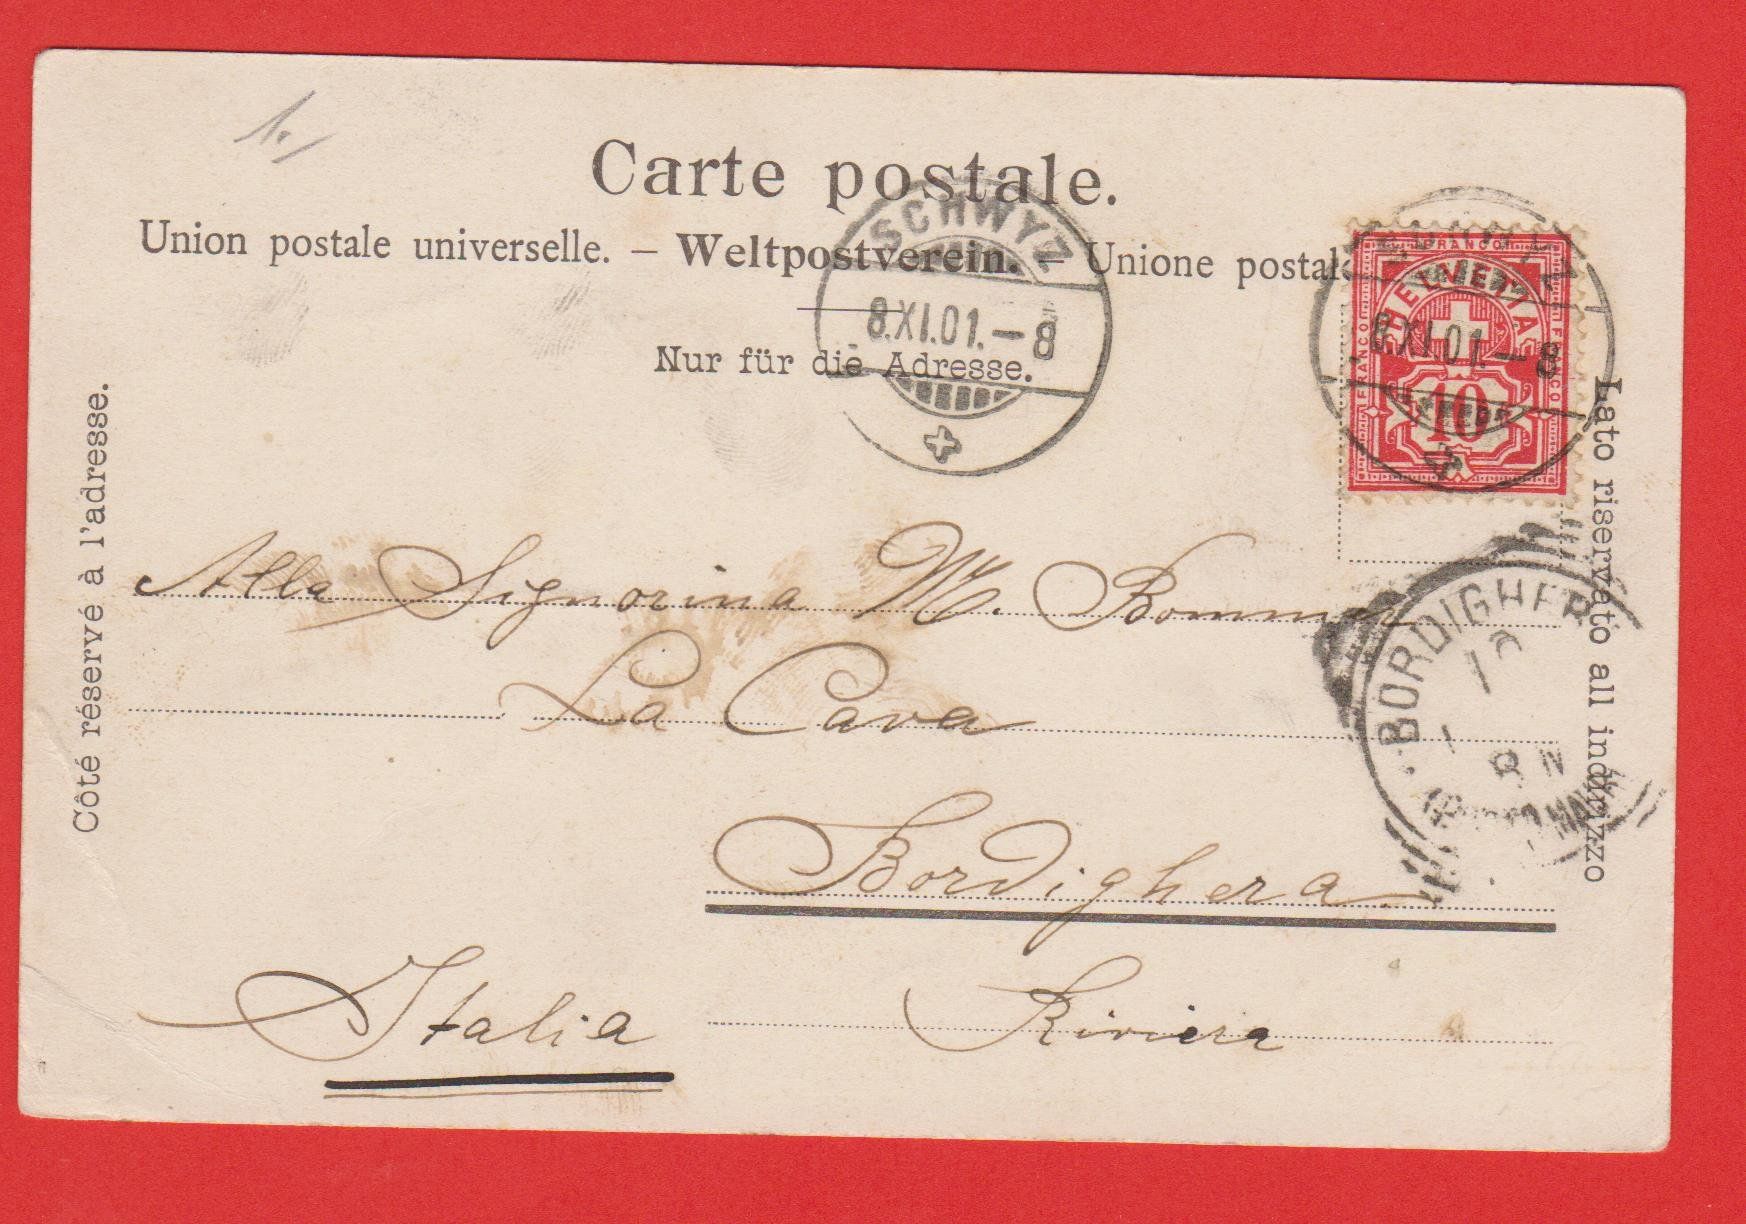 1.
Carte postale.
Union postale universelle. – Weltpostverein. – Unione postale
Nur für die Adresse.
Côté réservé à l'adresse.
Lato riservato all indirizzo
SCHWYZ
8.XI.01.–8
SCHWYZ
8.XI.01.–8
FRANCO
FRANCO
FRANCO
HELVETIA
10
BORDIGHER
Alla Signorina M.
La Cava
Bordighera
Italia
Riviera